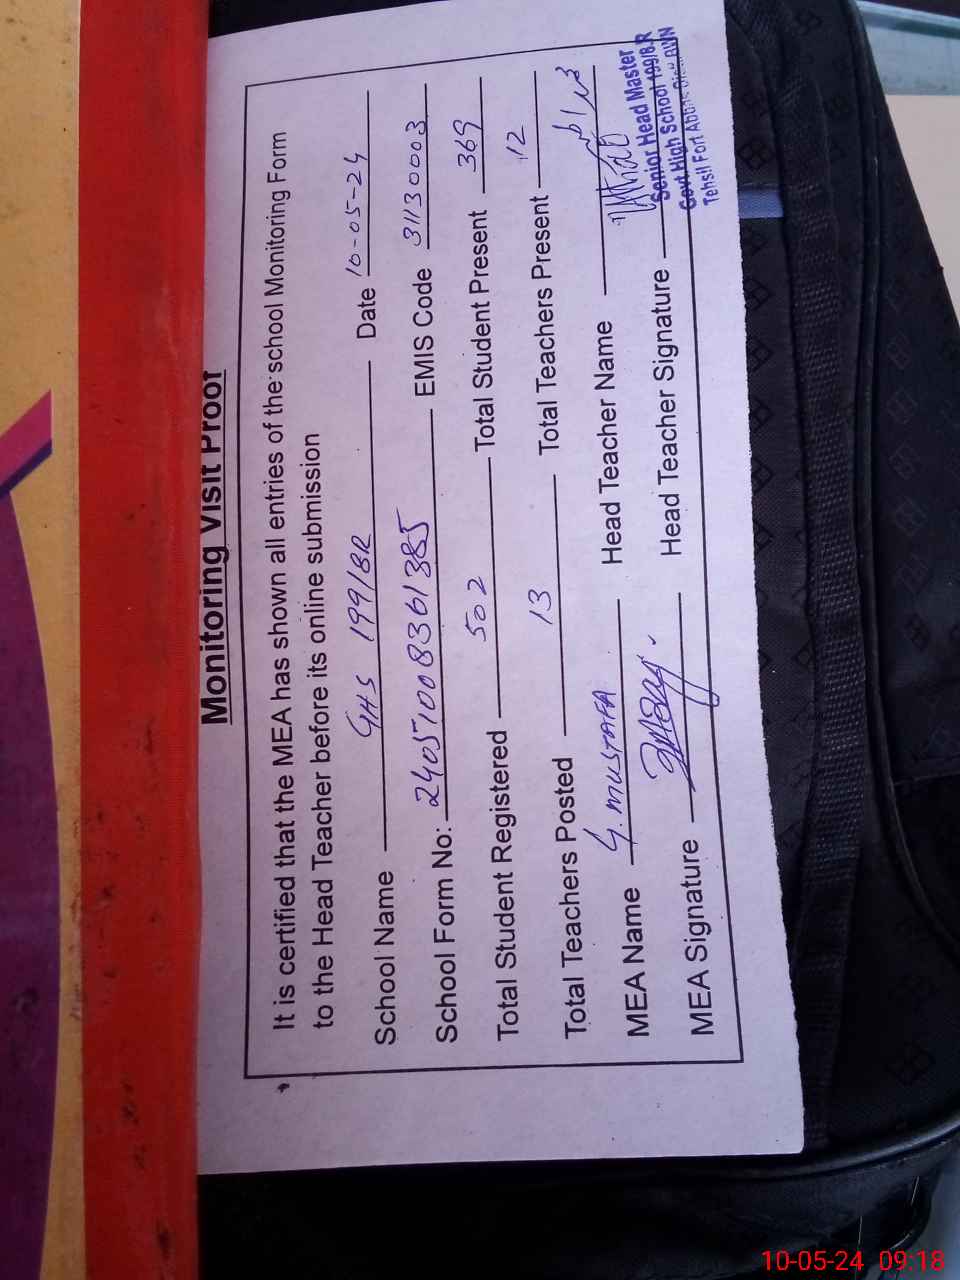 Monitoring Visit Proof
It is certified that the MEA has shown all entries of the school Monitoring Form
to the Head Teacher before its online submission
School Name GHS 199/8R Date 10-05-24
School Form No: 24051008361385 EMIS Code 31130003
Total Student Registered 502 Total Student Present 369
Total Teachers Posted 13 Total Teachers Present 12
MEA Name G. MUSTAFA Head Teacher Name
MEA Signature Head Teacher Signature
Senior Head Master
Govt High School 199/8.R
Tehsil Fort Abbas
10-05-24 09:18